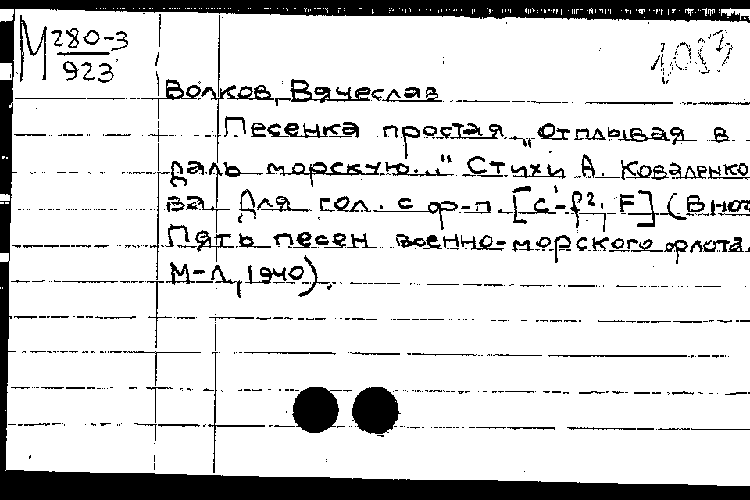 М 280-3
923
1083
Волков, Вячеслав
Песенка простая „Отплывая в
даль морскую..." Стихи А. Коваленко
ва. Для гол. с ф-п. [c'-f²; F] (В нот
Пять песен военно-морского флота.
М-Л, 1940).